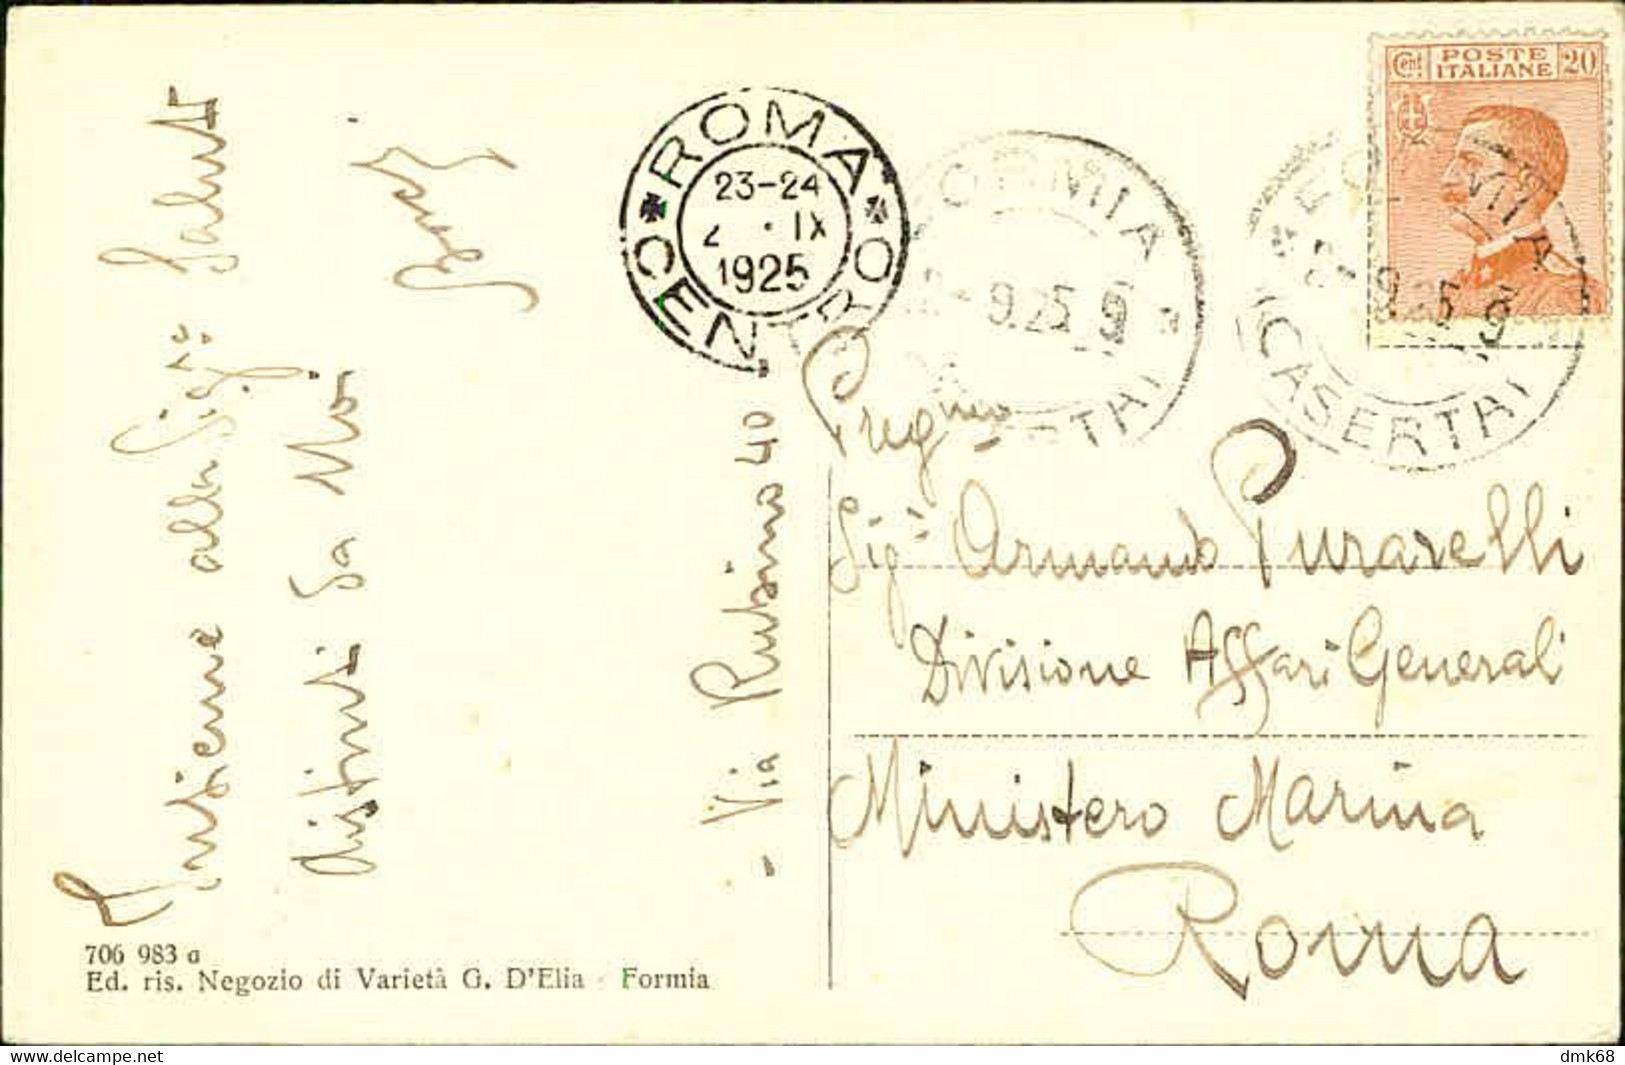 Insieme alla Sig.ra Saluti
distinti da Noi
ROMA
CENTRO
23-24
2 · IX
1925
FORMIA
2-9.25.9
(CASERTA)
FORMIA
9.25.9
(CASERTA)
POSTE
ITALIANE
Cent. 20
Preg mo
Sig. Armando Puravelli
Divisione Affari Generali
Ministero Marina
Roma
- Via Rubino 40
706 983 a
Ed. ris. Negozio di Varietà G. D'Elia - Formia
www.delcampe.net
dmk68